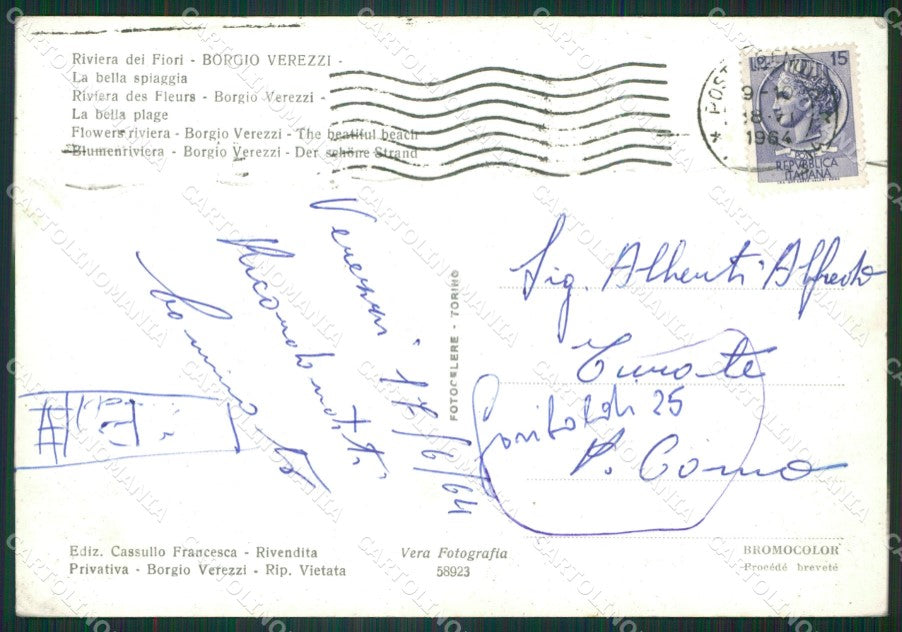 Riviera dei Fiori - BORGIO VEREZZI -
La bella spiaggia
Riviera des Fleurs - Borgio Verezzi -
La bella plage
Flowers riviera - Borgio Verezzi - The beatiful beach
Blumenriviera - Borgio Verezzi - Der schöne Strand
POST
9-
18-
1964
15
REPVBBLICA
ITALIANA
17/6/64
FOTOCELERE - TORINO
Sig. Alberti Alfredo
Turate
Garibaldi 25
P. Como
Ediz. Cassullo Francesca - Rivendita
Privativa - Borgio Verezzi - Rip. Vietata
Vera Fotografia
58923
BROMOCOLOR
Procédé breveté
CARTOLINOMANIA